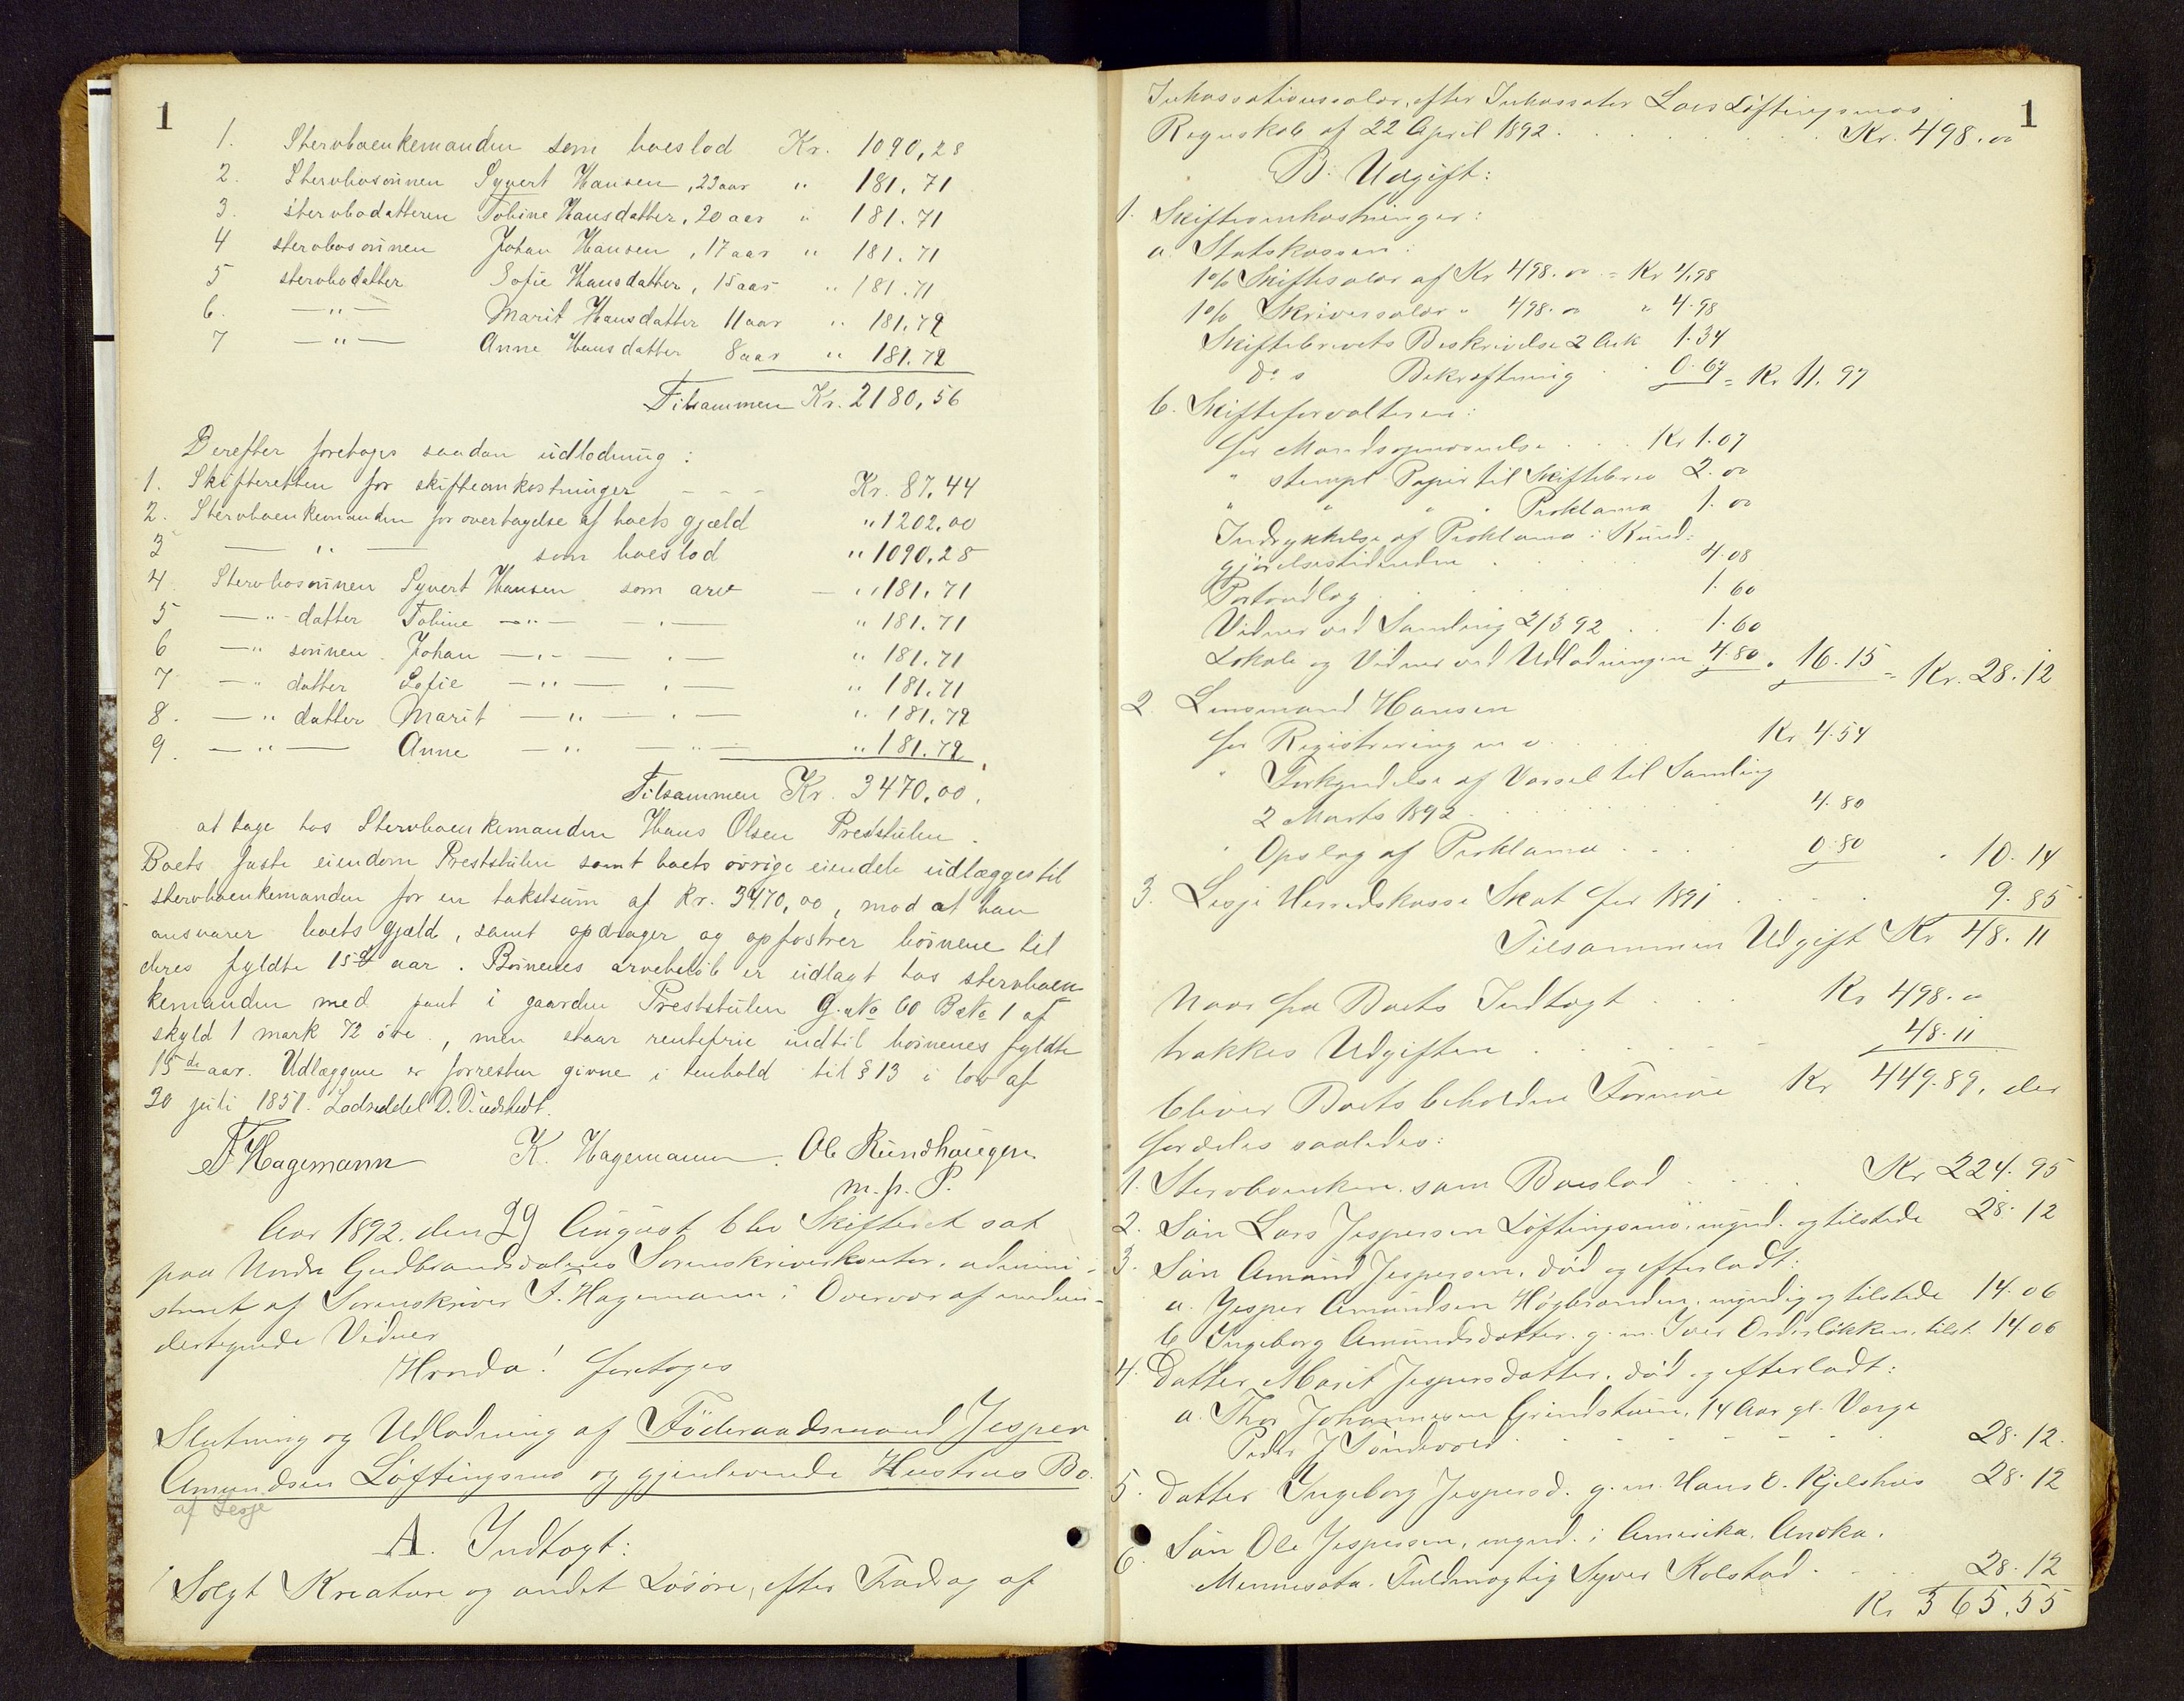 1
1. Stervboenkemanden som boeslod Kr. 1090,28
2. Stervbosønnen Syvert Hansen, 23 aar " 181.71
3. stervbodatteren Tobine Hansdatter, 20 aar " 181.71
4 stervbosønnen Johan Hansen, 17 aar " 181.71
5 stervbodatter Sofie Hansdatter, 15 aar " 181.71
6. — " — Marit Hansdatter 11 aar " 181.72
7 — " — Anne Hansdatter 8 aar " 181.72
Tilsammen Kr. 2180,56
Derefter foretages saadan udlodning:
1. Skifteretten for skifteomkostninger - - - Kr. 87,44
2. Stervboenkemanden for overtagelse af boets gjæld " 1202.00
3 — " — som boeslod " 1090.28
4. Stervbosønnen Syvert Hansen som arv - " 181.71
5 — " - datter Tobine — " — — . — " 181.71
6 — " sønnen Johan — . — — . — " 181.71
7 — " datter Sofie — " — — . — " 181.71
8. — " datter Marit — " — . — " 181.72
9. — " — Anne — " — " — " 181.72
Tilsammen Kr. 3470,00.
at tage hos Stervboenkemanden Hans Olsen Preststulen.
Boets faste eiendom Preststulen samt boets øvrige eiendele udlægges til
stervboenkemanden for en takstsum af Kr. 3470,00, mod at han
ansvarer boets gjæld, samt opdrager og opfostrer børnene til
deres fyldte 15de aar. Børnenes arvebeløb er udlagt hos stervboen-
kemanden med pant i gaarden Preststulen G. No 60 B No 1 af
skyld 1 mark 72 øre, men staar rentefrie indtil børnenes fyldte
15de aar. Udlæggene er forresten givne i henhold til § 13 i lov af
30 juli 1851. Lodseddel D. D. udstedt.
F. Hagemann K. Hagemann. Ole Rundhaugen
m. p. P.
Aar 1892. den 29 August blev Skifteret sat
paa Nordre Gudbrandsdalens Sorenskriverkontor, admini-
streret af Sorenskriver F. Hagemann i Overvær af nedenun-
dertegnede Vidner
Hvorda! foretoges
Slutning og Udlodning af Föderaadsmand Jesper
Amundsen Løftingsmo og gjenlevende Hustrus Bo.
af Lesje
A. Indtægt:
1 Solgt Kreature og andet Løsøre, efter Fradrag af
1
Inkassationssalær, efter Inkassator Lars Løftingsmos
Regnskab af 22 April 1892. . . . Kr. 498.00
B. Udgift:
1. Skifteomkostninger:
a. Statskassen:
1% Skiftesalær af Kr 498.00 = Kr 4,98
1% Skriversalær " 498.00 " 4.98
Skiftebrevets Beskrivelse 2 Ark 1.34
do s Bekræftning . . 0.67 = Kr 11.97
b. Skifteforvalteren:
for Mandsopnævnelse . . Kr 1.07
" stempl. Papir til Skiftebrev 2.00
" " " " Proklama 1.00
Indrykkelse af Proklama i Kund-
gjørelsestidenden . . . 4.08
Portoudlæg . . . 1.60
Vidner ved Samling 2/3 92 . . 1.60
Lokale og Vidner ved Udlodningen 4.80 " 16.15 = Kr. 28.12
2. Lensmand Hansen
for Registrering m v. . . Kr 4.54
" Forkyndelse af Varsel til Samling
2 Marts 1892 . . . 4.80
" Opslag af Proklama . . . 0.80 " 10.14
3. Lesje Herredskasse Skat for 1891 . . . 9.85
Tilsammen Udgift Kr 48.11
Naar fra Boets Indtægt . . . Kr 498.00
trækkes Udgiften . . . 48.11
bliver Boets beholdne Formue Kr 449.89, der
fordeles saaledes:
1. Stervboenken som Boeslod . . . Kr 224.95
2. Søn Lars Jespersen Løftingsmo, mynd. og tilstede 28.12
3. Søn Amund Jespersen, død og efterladt:
a. Jesper Amundsen Høgbranden, myndig og tilstede 14.06
b Ingeborg Amundsdatter. g. m. Iver Ordersløkken, tilst. 14.06
4. Datter Marit Jespersdatter, død og efterladt:
a. Thor Johannesen Grindstuen, 14 Aar gl. Værge
Peder J Søndevold . . . 28.12.
5. Datter Ingeborg Jespersd. g. m. Hans E. Kjelshus 28.12
6. Søn Ole Jespersen, mynd. i Amerika. Anoka.
Mennesota. Fuldmægtig Syver Kolstad . . . 28.12
Kr 365.55